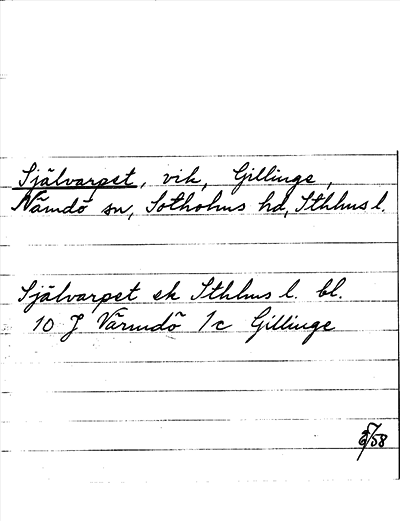 Självarpet, vik, Gillinge,
Värmdö sn, Sotholms hd, Sthlms l.
Självarpet ek Sthlms l. bl.
10 J Värmdö 1c Gillinge
/58